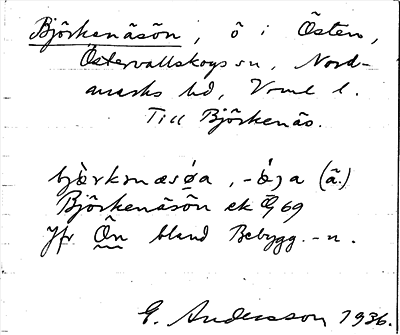 Björkenäsön, ö i Östen,
Östervallskogs sn, Nord-
marks hd, Vrml l.
Till Björkenäs.
bjærknæsøa, -øja (ä.)
Björkenäsön ek 69
Jfr Ön bland Bebygg.-n.
E. Andersson 1936.